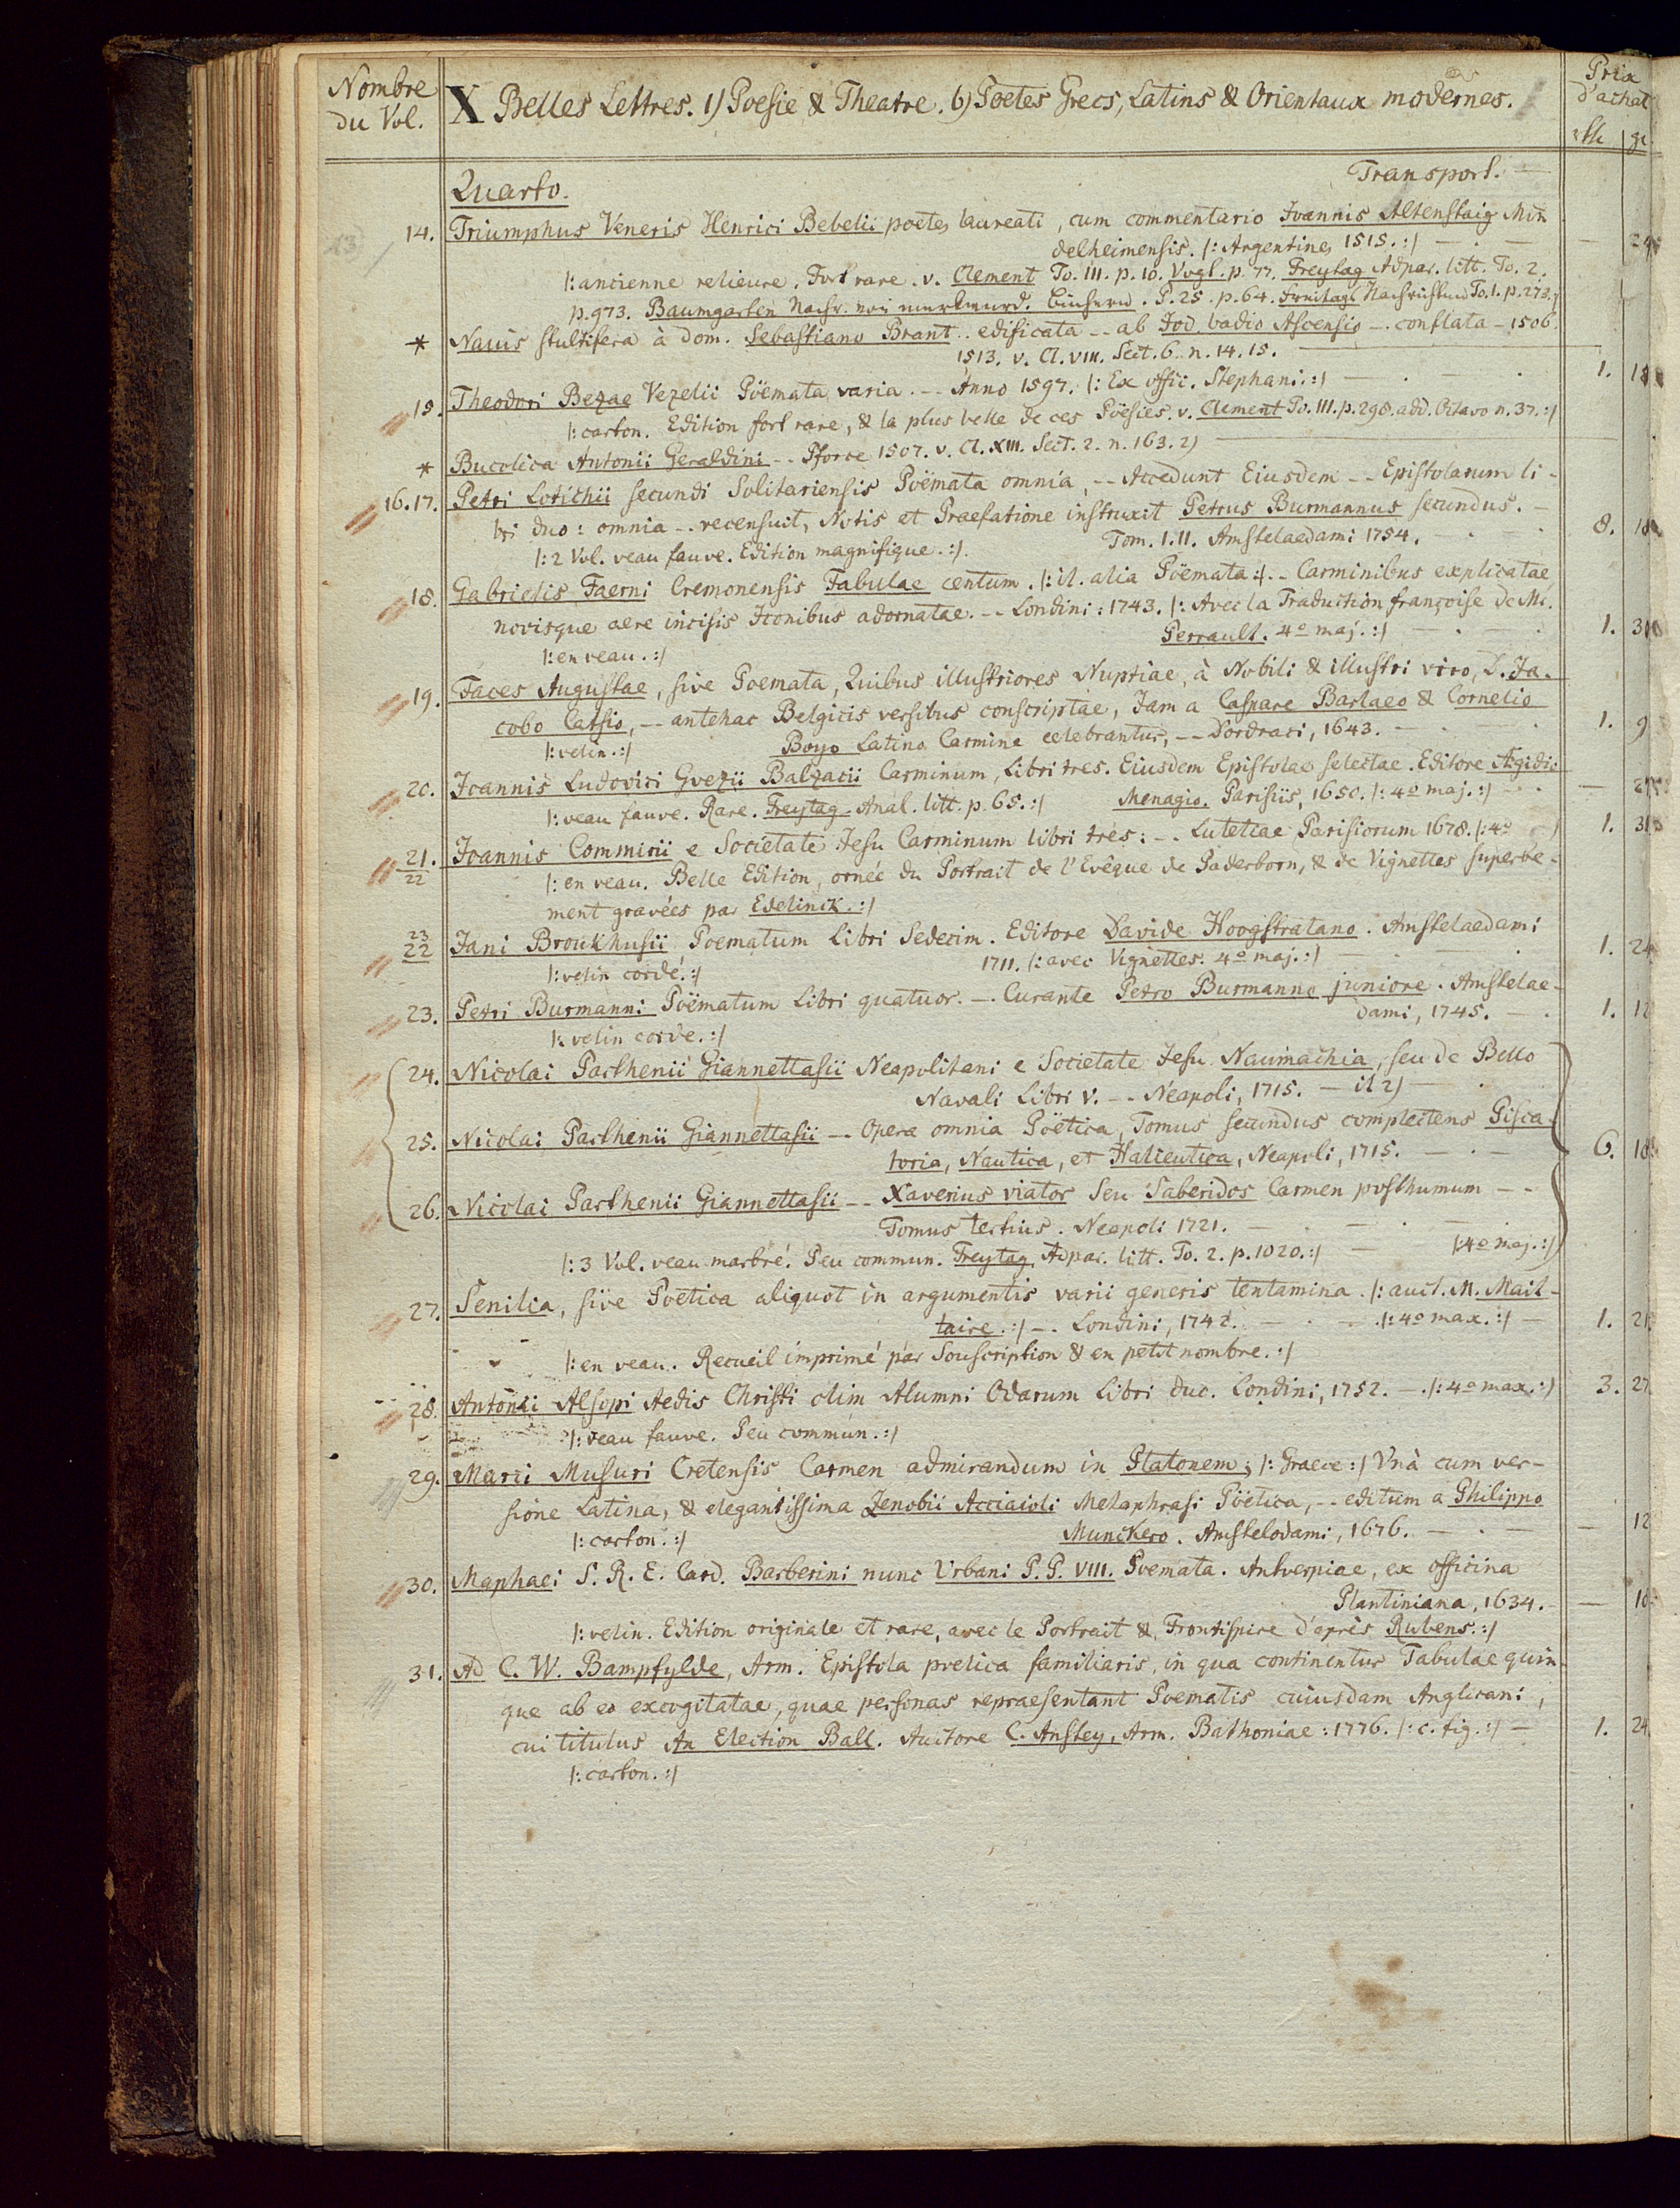 Nombre du Vol.
X Belles Lettres. 1) Poesie & Theatre. b) Poetes Grecs, Latins & Orientaux modernes.
Prix d'achat
Quarto.
Transport. —
14. Triumphus Veneris Henrici Bebelii poetes laureati, cum commentario Ioannis Altenstaig Min
delheimensis. |: Argentines 1515. :| — . — — 24
|: ancienne relieure. Fort rare. v. Clement To. III. p. 10. Vogl. p. 77. Freytag Adpar. litt. To. 2.
p. 973. Baumgarten Nachr. von merkwurd. Büchern. P. 25. p. 64. Freitags Nachrichten To. 1. p. 273.
* Nauis stultifera à dom. Sebastiano Brant .. edificata -- ab Iod. badio Ascensio -- conflata - 1506.
1513. v. Cl. VIII. Sect. 6. n. 14. 15. —
15. Theodori Bezae Vezelii Poëmata varia. -- Anno 1597. |: Ex offic. Stephani. :| — . — . 1.
|: carton. Edition fort rare, & la plus belle de ces Poësies. v. Clement To. III. p. 298. add. Octavo n. 37. :|
* Bucolica Antonii Geraldini -- Pforce 1507. v. Cl. XIII. Sect. 2. n. 163. 2) —
16. 17. Petri Lotichii secundi Solitariensis Poëmata omnia, -- Accedunt Eiusdem -- Epistolarum li-
bri duo: omnia -- recensuit, Notis et Praefatione instruxit Petrus Burmannus secundus. —
|: 2 Vol. veau fauve. Edition magnifique. :| Tom. I. II. Amstelaedami 1754. — . — . 8. 18
18. Gabrielis Faerni Cremonensis Fabulae centum. |: it. alia Poëmata :| -- Carminibus explicatae
novisque aere incisis Iconibus adornatae. -- Londini: 1743. |: Avec la Traduction françoise de Mr.
|: en veau. :| Perrault. 4o maj. :| — . — . 1. 3
19. Faces Augustae, sive Poemata, Quibus illustriores Nuptiae, à Nobili & illustri viro, D. Ja-
cobo Catsio, -- antehac Belgicis versibus conscriptae, Jam a Caspare Barlaeo & Cornelio
|: velin. :| Boyo Latino Carmine celebrantur, -- Dordraci, 1643. — . . 1. 9
20. Ioannis Ludovici Gvezii Balzacii Carminum, Libri tres. Eiusdem Epistolae selectae. Editore Ægidio
|: veau fauve. Rare. Freytag Anal. litt. p. 65. :| Menagio. Parisiis, 1650. |: 4o maj. :| — . —
21. 22 Ioannis Commirii e Societate Iesu Carminum libri tres: -- Lutetiae Parisiorum 1678. |: 4o 1. 31
|: en veau. Belle Edition, ornée du Portrait de l'Evêque de Paderborn, & de Vignettes superbe-
ment gravées par Edelinck. :|
23 22 Jani Broukhusii Poematum Libri Sedecim. Editore Davide Hoogstratano. Amstelaedami
|: velin cordé. :| 1711. |: avec Vignettes. 4o maj. :| — . — . 1. 24
23. Petri Burmanni Poëmatum Libri quatuor. -- Curante Petro Burmanno juniore. Amstelae-
|: velin corde. :| dami, 1745. — . 1. 12
24. Nicolai Parthenii Giannettasii Neapolitani e Societate Iesu Naumachia, seu de Bello
Navali Libri V. -- Neapoli, 1715. — it 2) — .
25. Nicolai Parthenii Giannettasii -- Opera omnia Poëtica, Tomus secundus complectens Pisca-
toria, Nautica, et Halieutica, Neapoli, 1715. — . — 6. 18
26. Nicolai Parthenii Giannettasii -- Xaverius viator Seu Saberidos Carmen posthumum --
Tomus tertius. Neapoli 1721. — . — . — .
|: 3 Vol. veau marbré. Peu commun. Freytag Adpar. litt. To. 2. p. 1020. :| — |: 4o maj. :|
27. Senilia, sive Poetica aliquot in argumentis varii generis tentamina. |: auct. M. Mait-
taire. :| -- Londini, 1742. — . — . |: 4o max. :| — 1. 21
|: en veau. Recueil imprimé par Souscription & en petit nombre. :|
28. Antonii Alsopi Aedis Christi olim Alumni Odarum Libri duo. Londini, 1752. . |: 4o max. :| 3. 27
|: veau fauve. Peu commun. :|
29. Marci Musuri Cretensis Carmen admirandum in Platonem; |: Graece :| Vnà cum ver-
sione Latina, & elegantissima Zenobii Acciaioli Metaphrasi Pöetica, -- editum a Philippo
|: carton. :| Munckero. Amstelodami, 1676. — . — — 12
30. Maphaei S. R. E. Card. Barberini nunc Urbani P. P. VIII. Poemata. Antverpiae, ex officina
Plantiniana, 1634. — 10
|: velin. Edition originale et rare, avec le Portrait & Frontispice d'après Rubens. :|
31. Ad C. W. Bampfylde, Arm. Epistola poetica familiaris, in qua continentur Tabulae quin-
que ab eo excogitatae, quae personas repraesentant Poematis cuiusdam Anglicani,
cui titulus An Election Ball. Auctore C. Anstey, Arm. Bathoniae: 1776. |: c. fig. :| — 1. 24
|: carton. :|